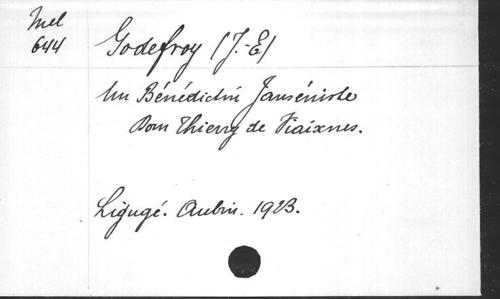 Mel
644
Godefroy (J.-E)
Un Bénédictin Janséniste
Dom Thierry de Viaixnes.
Ligugé. Aubin. 1923.